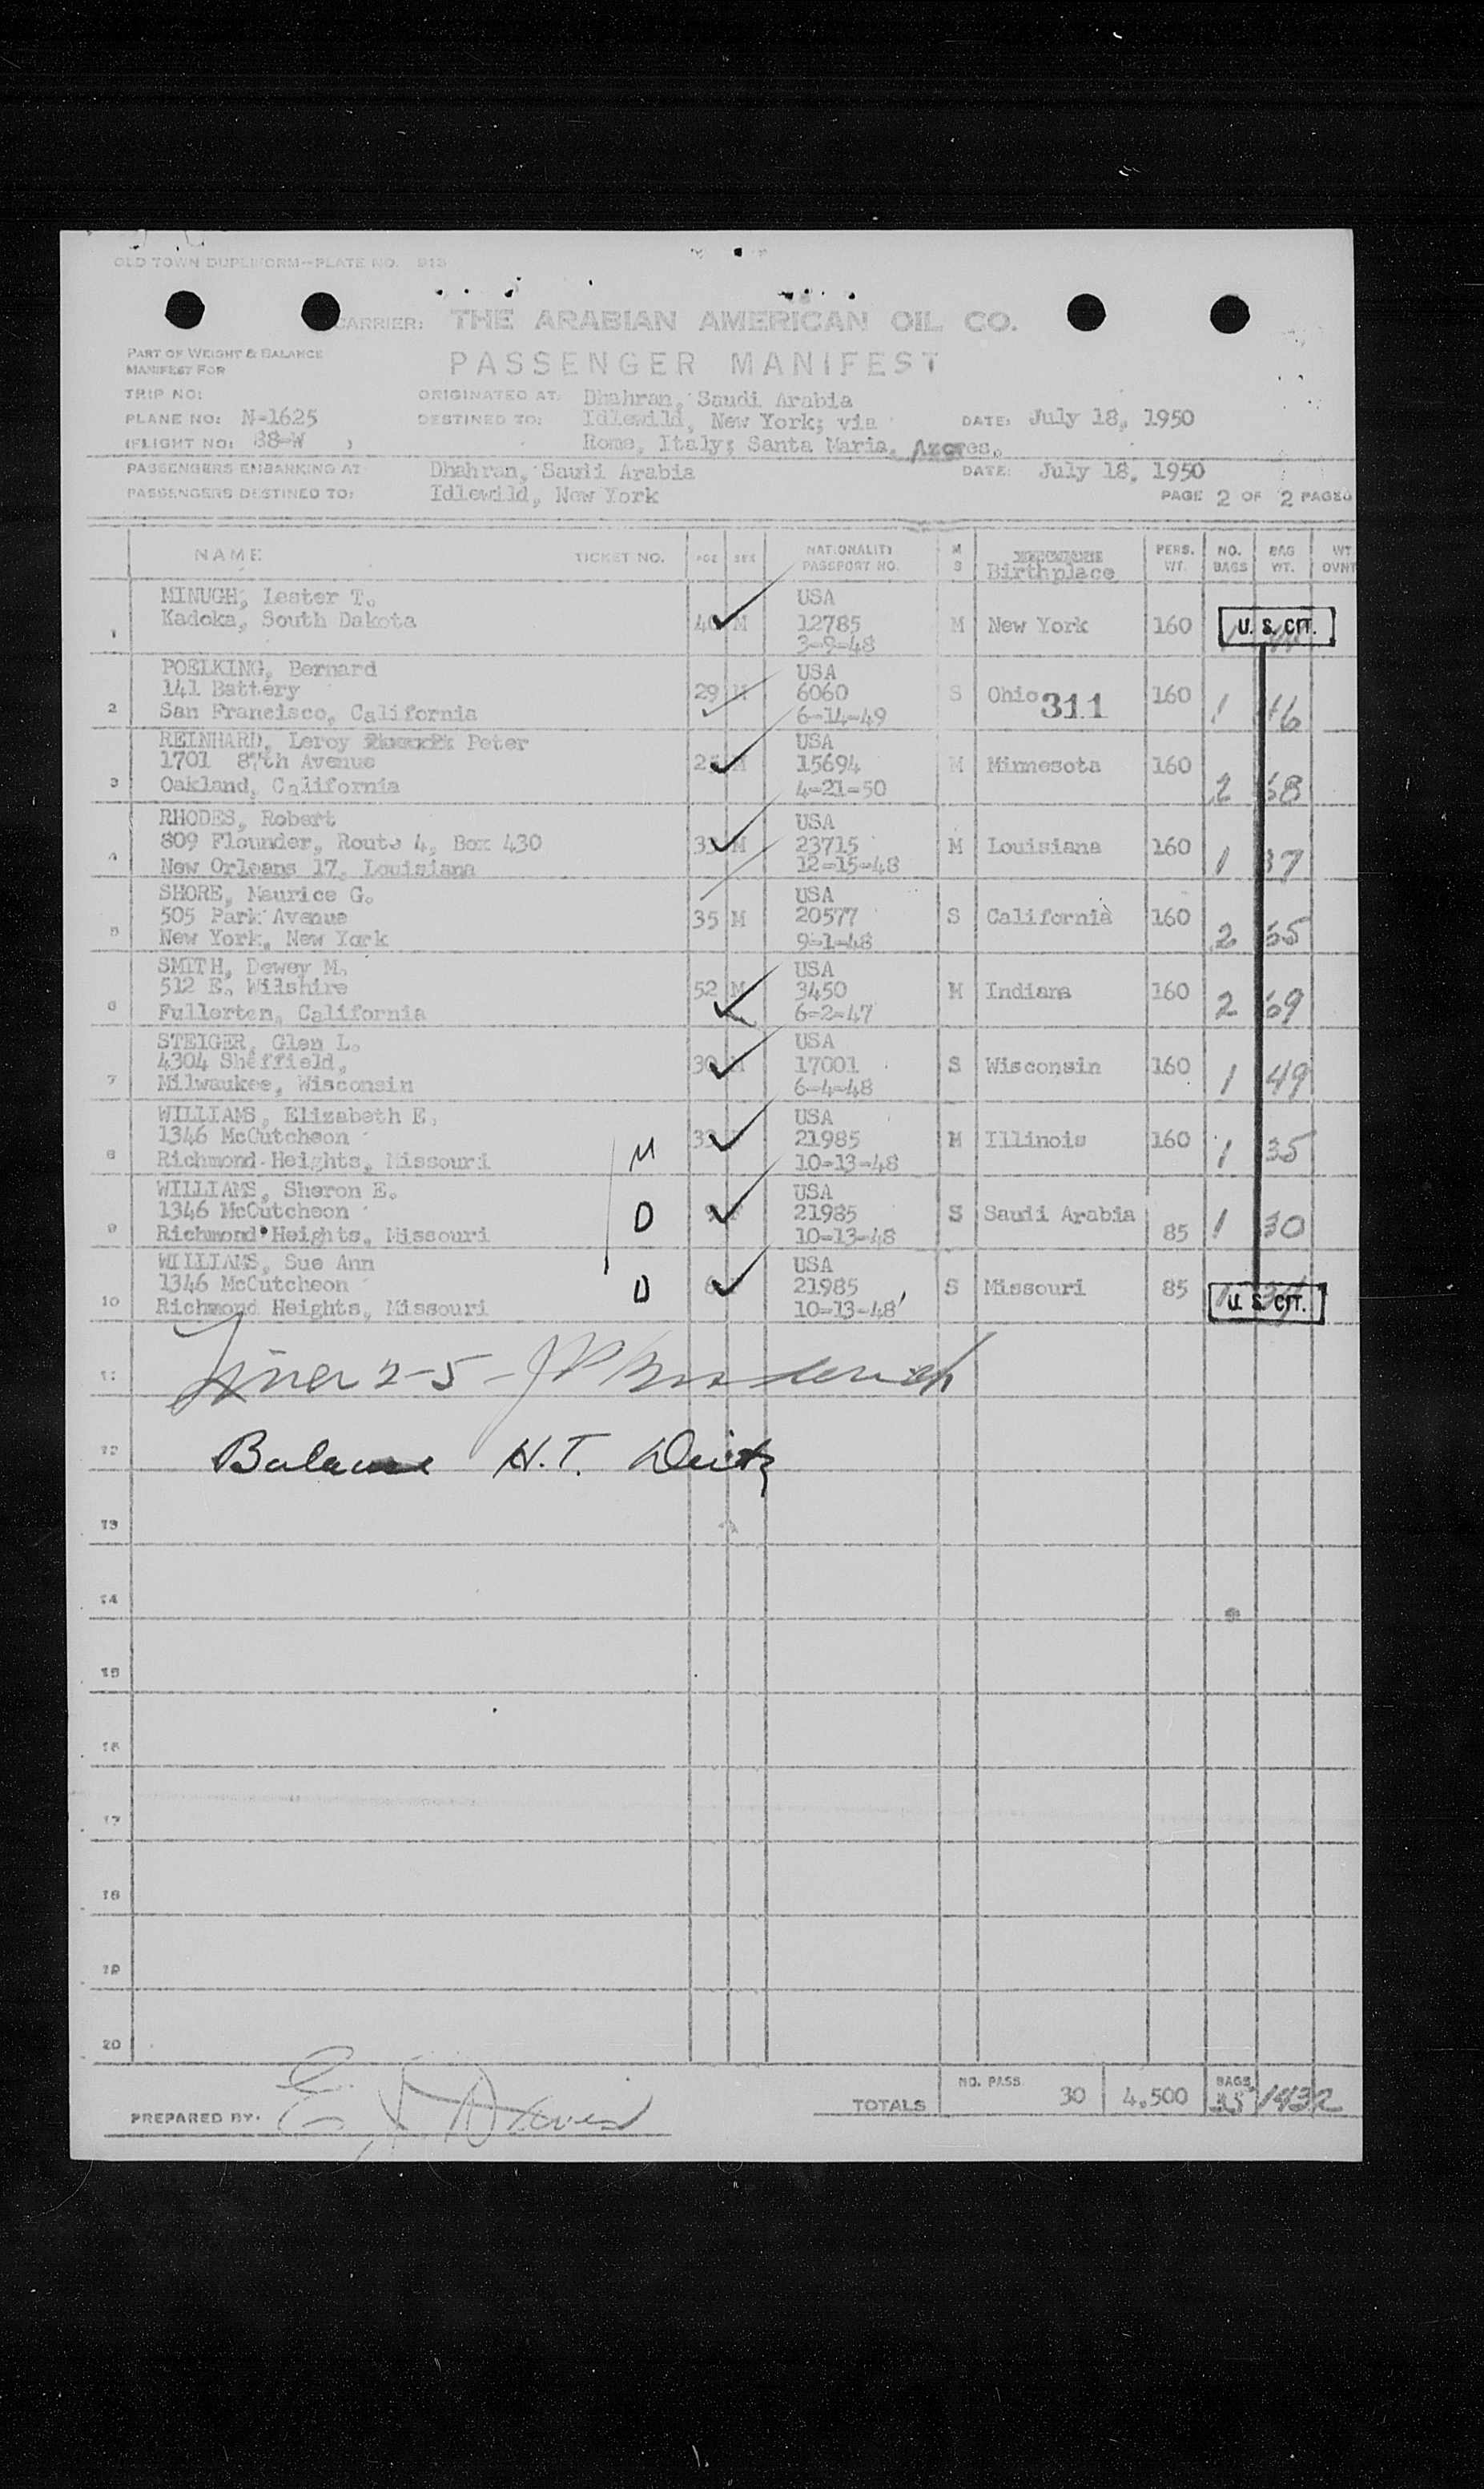 OLD TOWN DUPLIFORM—PLATE NO. 913
CARRIER: THE ARABIAN AMERICAN OIL CO.
PART OF WEIGHT & BALANCE
MANIFEST FOR
PASSENGER MANIFEST
TRIP NO:
ORIGINATED AT: Dhahran, Saudi Arabia
PLANE NO: N-1625
DESTINED TO: Idlewild, New York; via
DATE: July 18, 1950
(FLIGHT NO: 88-W )
Rome, Italy; Santa Maria, Azores.
PASSENGERS EMBARKING AT Dhahran, Saudi Arabia
DATE: July 18, 1950
PASSENGERS DESTINED TO: Idlewild, New York
PAGE 2 OF 2 PAGES
NAME TICKET NO. AGE SEX NATIONALITY PASSPORT NO. M S Birthplace PERS. WT. NO. BAGS BAG WT. WT OVNT
MINUGH, Lester T. USA
1 Kadoka, South Dakota 40 M 12785 M New York 160 U. S. CIT.
3-9-48
POELKING, Bernard USA
141 Battery 29 M 6060 S Ohio 311 160 1 46
2 San Francisco, California 6-14-49
REINHARD, Leroy Peter USA
1701 87th Avenue M 15694 M Minnesota 160 2 58
3 Oakland, California 4-21-50
RHODES, Robert USA
809 Flounder, Route 4, Box 430 33 M 23715 M Louisiana 160 1 37
4 New Orleans 17, Louisiana 12-15-48
SHORE, Maurice G. USA
505 Park Avenue 35 M 20577 S California 160 2 55
5 New York, New York 9-1-48
SMITH, Dewey M. USA
512 E. Wilshire 52 M 3450 M Indiana 160 2 69
6 Fullerton, California 6-2-47
STEIGER, Glen L. USA
4304 Sheffield, 30 M 17001 S Wisconsin 160 1 49
7 Milwaukee, Wisconsin 6-4-48
WILLIAMS, Elizabeth E. USA
1346 McCutcheon 33 21985 M Illinois 160 1 35
8 Richmond Heights, Missouri M 10-13-48
WILLIAMS, Sharon E. USA
1346 McCutcheon D 9 F 21985 S Saudi Arabia 85 1 30
9 Richmond Heights, Missouri 10-13-48
WILLIAMS, Sue Ann USA
1346 McCutcheon D 6 21985 S Missouri 85
10 Richmond Heights, Missouri 10-13-48 U. S. CIT.
11 2-5 -
12 Balance H.T. Deitz
13
14
15
16
17
18
19
20
PREPARED BY:
TOTALS NO. PASS 30 4,500 BAGS 35 1432